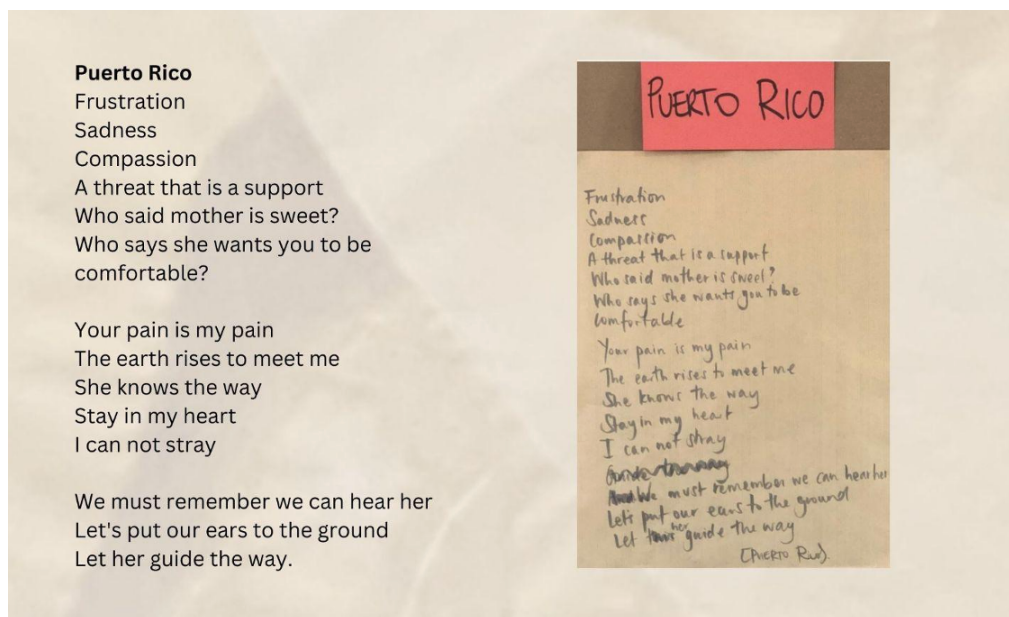 Puerto Rico
Frustration
Sadness
Compassion
A threat that is a support
Who said mother is sweet?
Who says she wants you to be
comfortable?
Your pain is my pain
The earth rises to meet me
She knows the way
Stay in my heart
I can not stray
We must remember we can hear her
Let's put our ears to the ground
Let her guide the way.
PUERTO RICO
Frustration
Sadness
Compassion
A threat that is a support
Who said mother is sweet?
Who says she wants you to be
comfortable
Your pain is my pain
The earth rises to meet me
She knows the way
Stay in my heart
I can not stray
We must remember we can hear her
Let's put our ears to the ground
Let her guide the way
(PUERTO RICO)